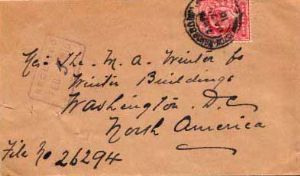 The M. A. Winter Co
Winter Buildings
Washington D.C
North America
File No 26294